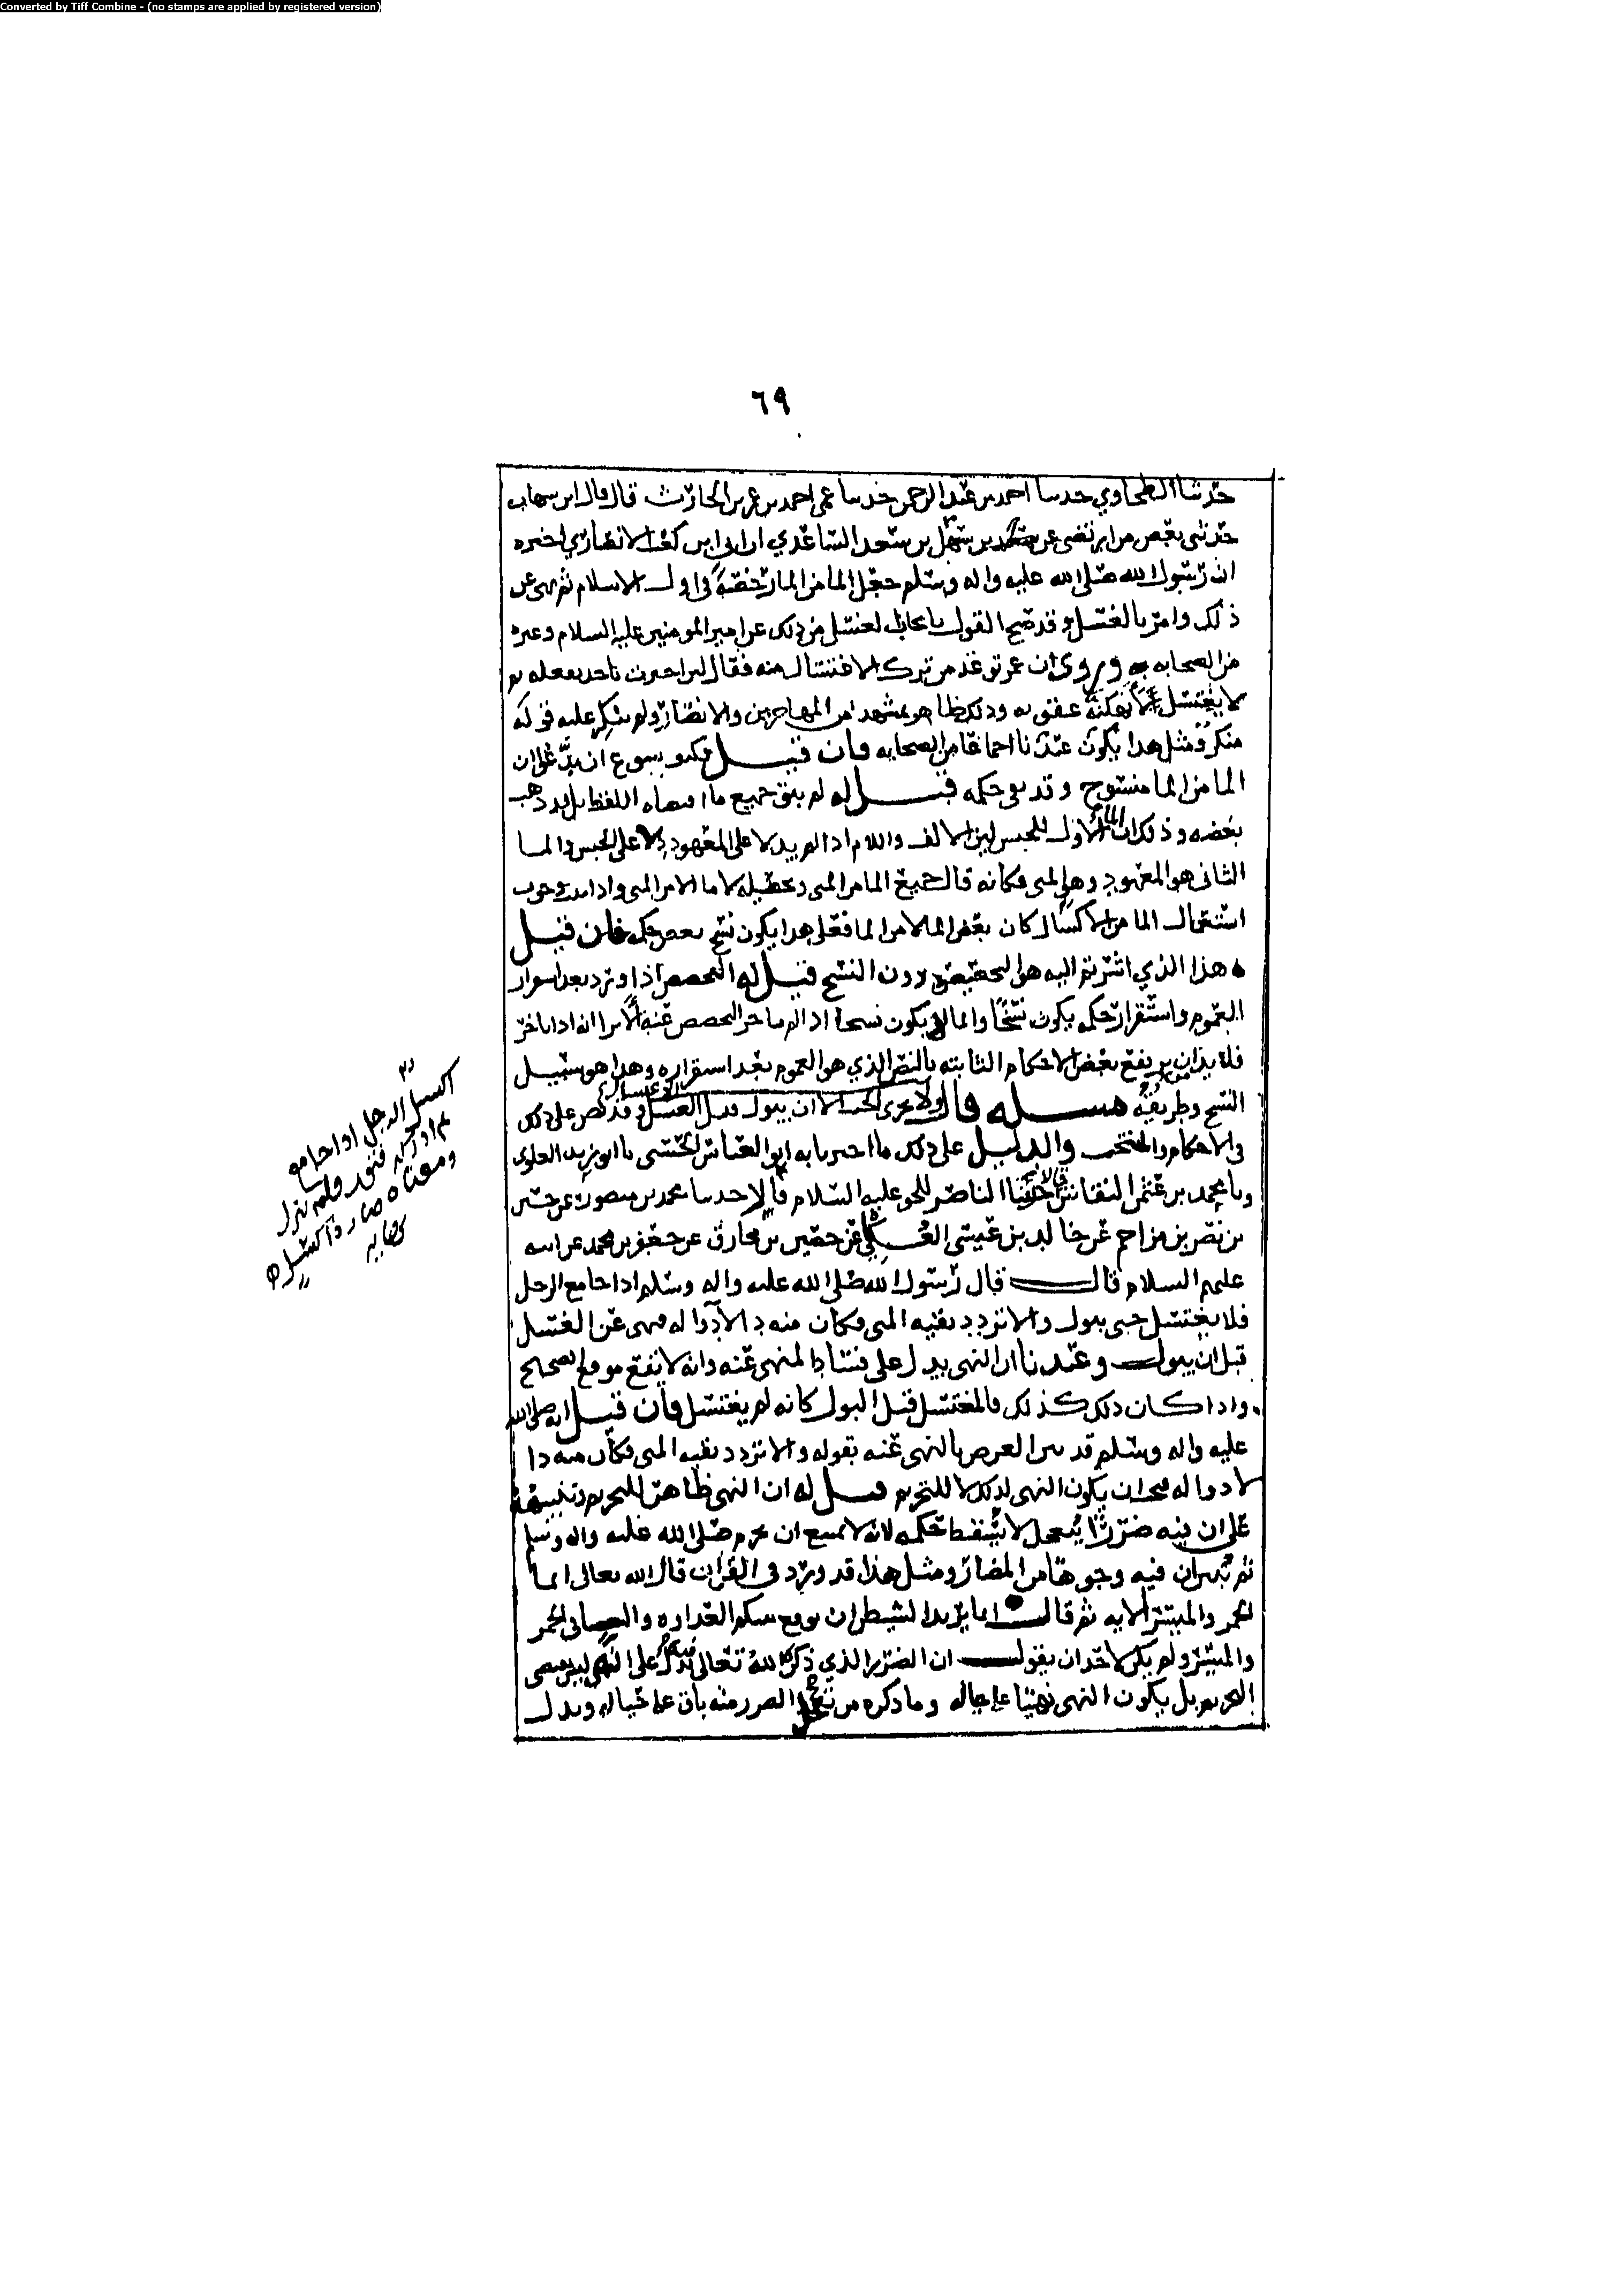 Converted by Tiff Combine - (no stamps are applied by registered version)
٦٩
حدثنا الطحاوي حدسا احمد بن عبد الرحمن حدسا عمى احمد بن عمر بن الحارث قال قال ابن سهاب
حدثنى بعض من ارتضى عن سهل بن سعد الساعدي ان ابى ابن كعب الانصاري اخبره
ان رسول الله صلى الله عليه واله وسلم جعل الما من الما رخصة فى اول الاسلام ثم نهى عن
ذلك وامر بالغسل وقد صح القول بايجاب الغسل من ذلك عن امير المومنين عليه السلام وغيره
من الصحابه وروى ان عمر توعد من ترك الاغتسال منه فقال لا اخبرت باحد يفعله ثم
لا يغتسل الا نهكته عقوبه وذلك ظاهر بمشهد من المهاجرين والانصار ولم ينكر عليه قوله
منكر ومثل هدا يكون عندنا اجماعا من الصحابه فان قيل فكيف يسوغ ان يدعى ان
الما من الما منسوخ وقد بقى حكمه قيل له لم يبق جميع ما اقتضاه اللفظ بل قد ذهب
بعضه وذلك ان الما الاول للجنس لان الالف واللام ادا لم يدلا على المعهود دلا على الجنس والما
الثانى هو المعهود وهو المنى فكانه قال جميع الما من المنى وتحصيله لا ما الا من المنى وادا وجوب
استعمال الما من الاكسال كان بعض الما لا من الما فعلى هدا يكون نسخ بعض حكمه فان قيل
هذا الذي اشرتم اليه هو التخصيص دون النسخ قيل له التخصيص اذا ورد بعد استقرار
العموم واستقرار حكمه يكون نسخا وانما لا يكون نسخا ادا لم يتاخر التخصيص عنه الا ترا انه ادا تاخر
فلا بد ان يرتفع بعض الاحكام الثابته بالنص الذي هو العموم بعد استقراره وهدا هو سبيل
النسخ وطريقه مسله قال ولا يجزى الجنب الاغتسال الا ان يبول قبل الغسل وقد نص على ذلك
فى الاحكام والمنتخب والدليل على ذلك ما اخبرنا به ابو العباس الحسنى نا ابو زيد العلوى
ونا محمد بن عثمن النقاش حدثنا الناصر للحق عليه السلام قالا حدسا محمد بن منصور عن حسين
بن نصر بن مزاحم عن خالد بن عيسى العكلى عن حصين بن مخارق عن جعفر بن محمد عن ابيه
عليهم السلام قال قال رسول الله صلى الله عليه واله وسلم ادا جامع الرجل
فلا يغتسل حتى يبول والا تردد بقيه المنى فكان منه دا لا دوا له فنهى عن الغسل
قبل ان يبول وعندنا ان النهى يدل على فساد المنهى عنه وانه لا يقع موقع الصحيح
وادا كان دلك كذلك فالمغتسل قبل البول كانه لم يغتسل فان قيل انه صلى الله
عليه واله وسلم قد بين الغرض بالنهى عنه بقوله والا تردد بقيه المنى فكان منه دا
لا دوا له فيجب ان يكون النهى لذلك لا للتحريم قيل له ان النهى ظاهر للتحريم وتنبيهه
على ان فيه ضررا لا يسقط حكمه لانه لا يمنع ان يحرم صلى الله عليه واله وسلم
ثم يبين ان فيه وجوها من المضار ومثل هذا قد ورد فى القران قال الله تعالى انما
الخمر والميسر الايه ثم قال انما يريد الشيطان ان يوقع بينكم العداوه والبغضا فى الخمر
والميسر ولم يكن لاحد ان يقول ان الضرر الذي ذكره الله تعالى يدل على ان النهى ليس يقتضى
التحريم بل يكون النهى نهيا على حاله وما ذكره من الضرر منه باق على حياله ويدل
اكسل الرجل ادا جامع
ثم ادركه فتور فلم ينزل
ومعناه صار ذا كسل
نهايه